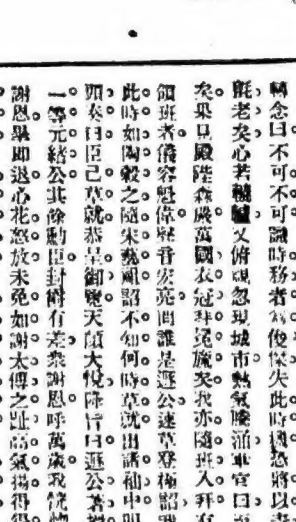 轉念曰不可不可識時務者為俊傑失此時機恐將以
氈老矣心若轆轤又俯視忽現城市熱氣騰涌軍官曰
矣果見殿陛森嚴萬國衣冠拜冕旒矣我亦隨班入拜有
領班者儀容魁偉聲音宏亮問誰是遯公速草登極詔
此時如陶穀之隨朱
詔不知何時草就出諸袖中
頭奏曰臣己草就恭呈御覽天顏大悅降旨曰遯公著
一等元緒公其餘勳臣封爵有差衆謝恩呼萬歲我恍
謝恩畢即退心花怒放未免如謝太傅之趾高氣揚得得